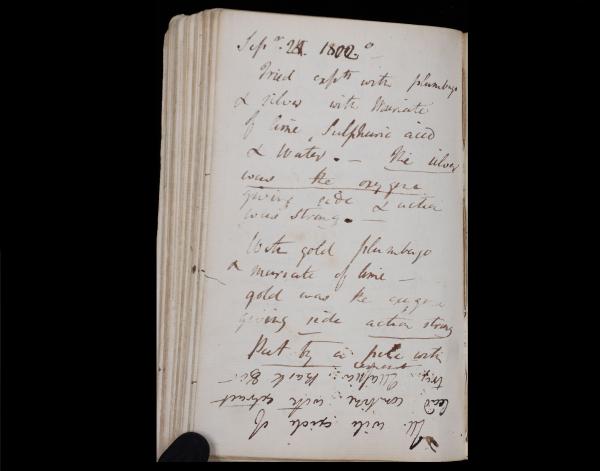 Sepr. 24. 1800.
Tried expts with plumbago
& silver with Muriate
of lime, Sulphuric acid
& Water. — The silver
was the oxygene
giving side & action
was strong. —
With gold plumbago
& muriate of lime —
gold was the oxygene
giving side action strong
Put by a pile with
with oxide of
with extract
Bark &c —